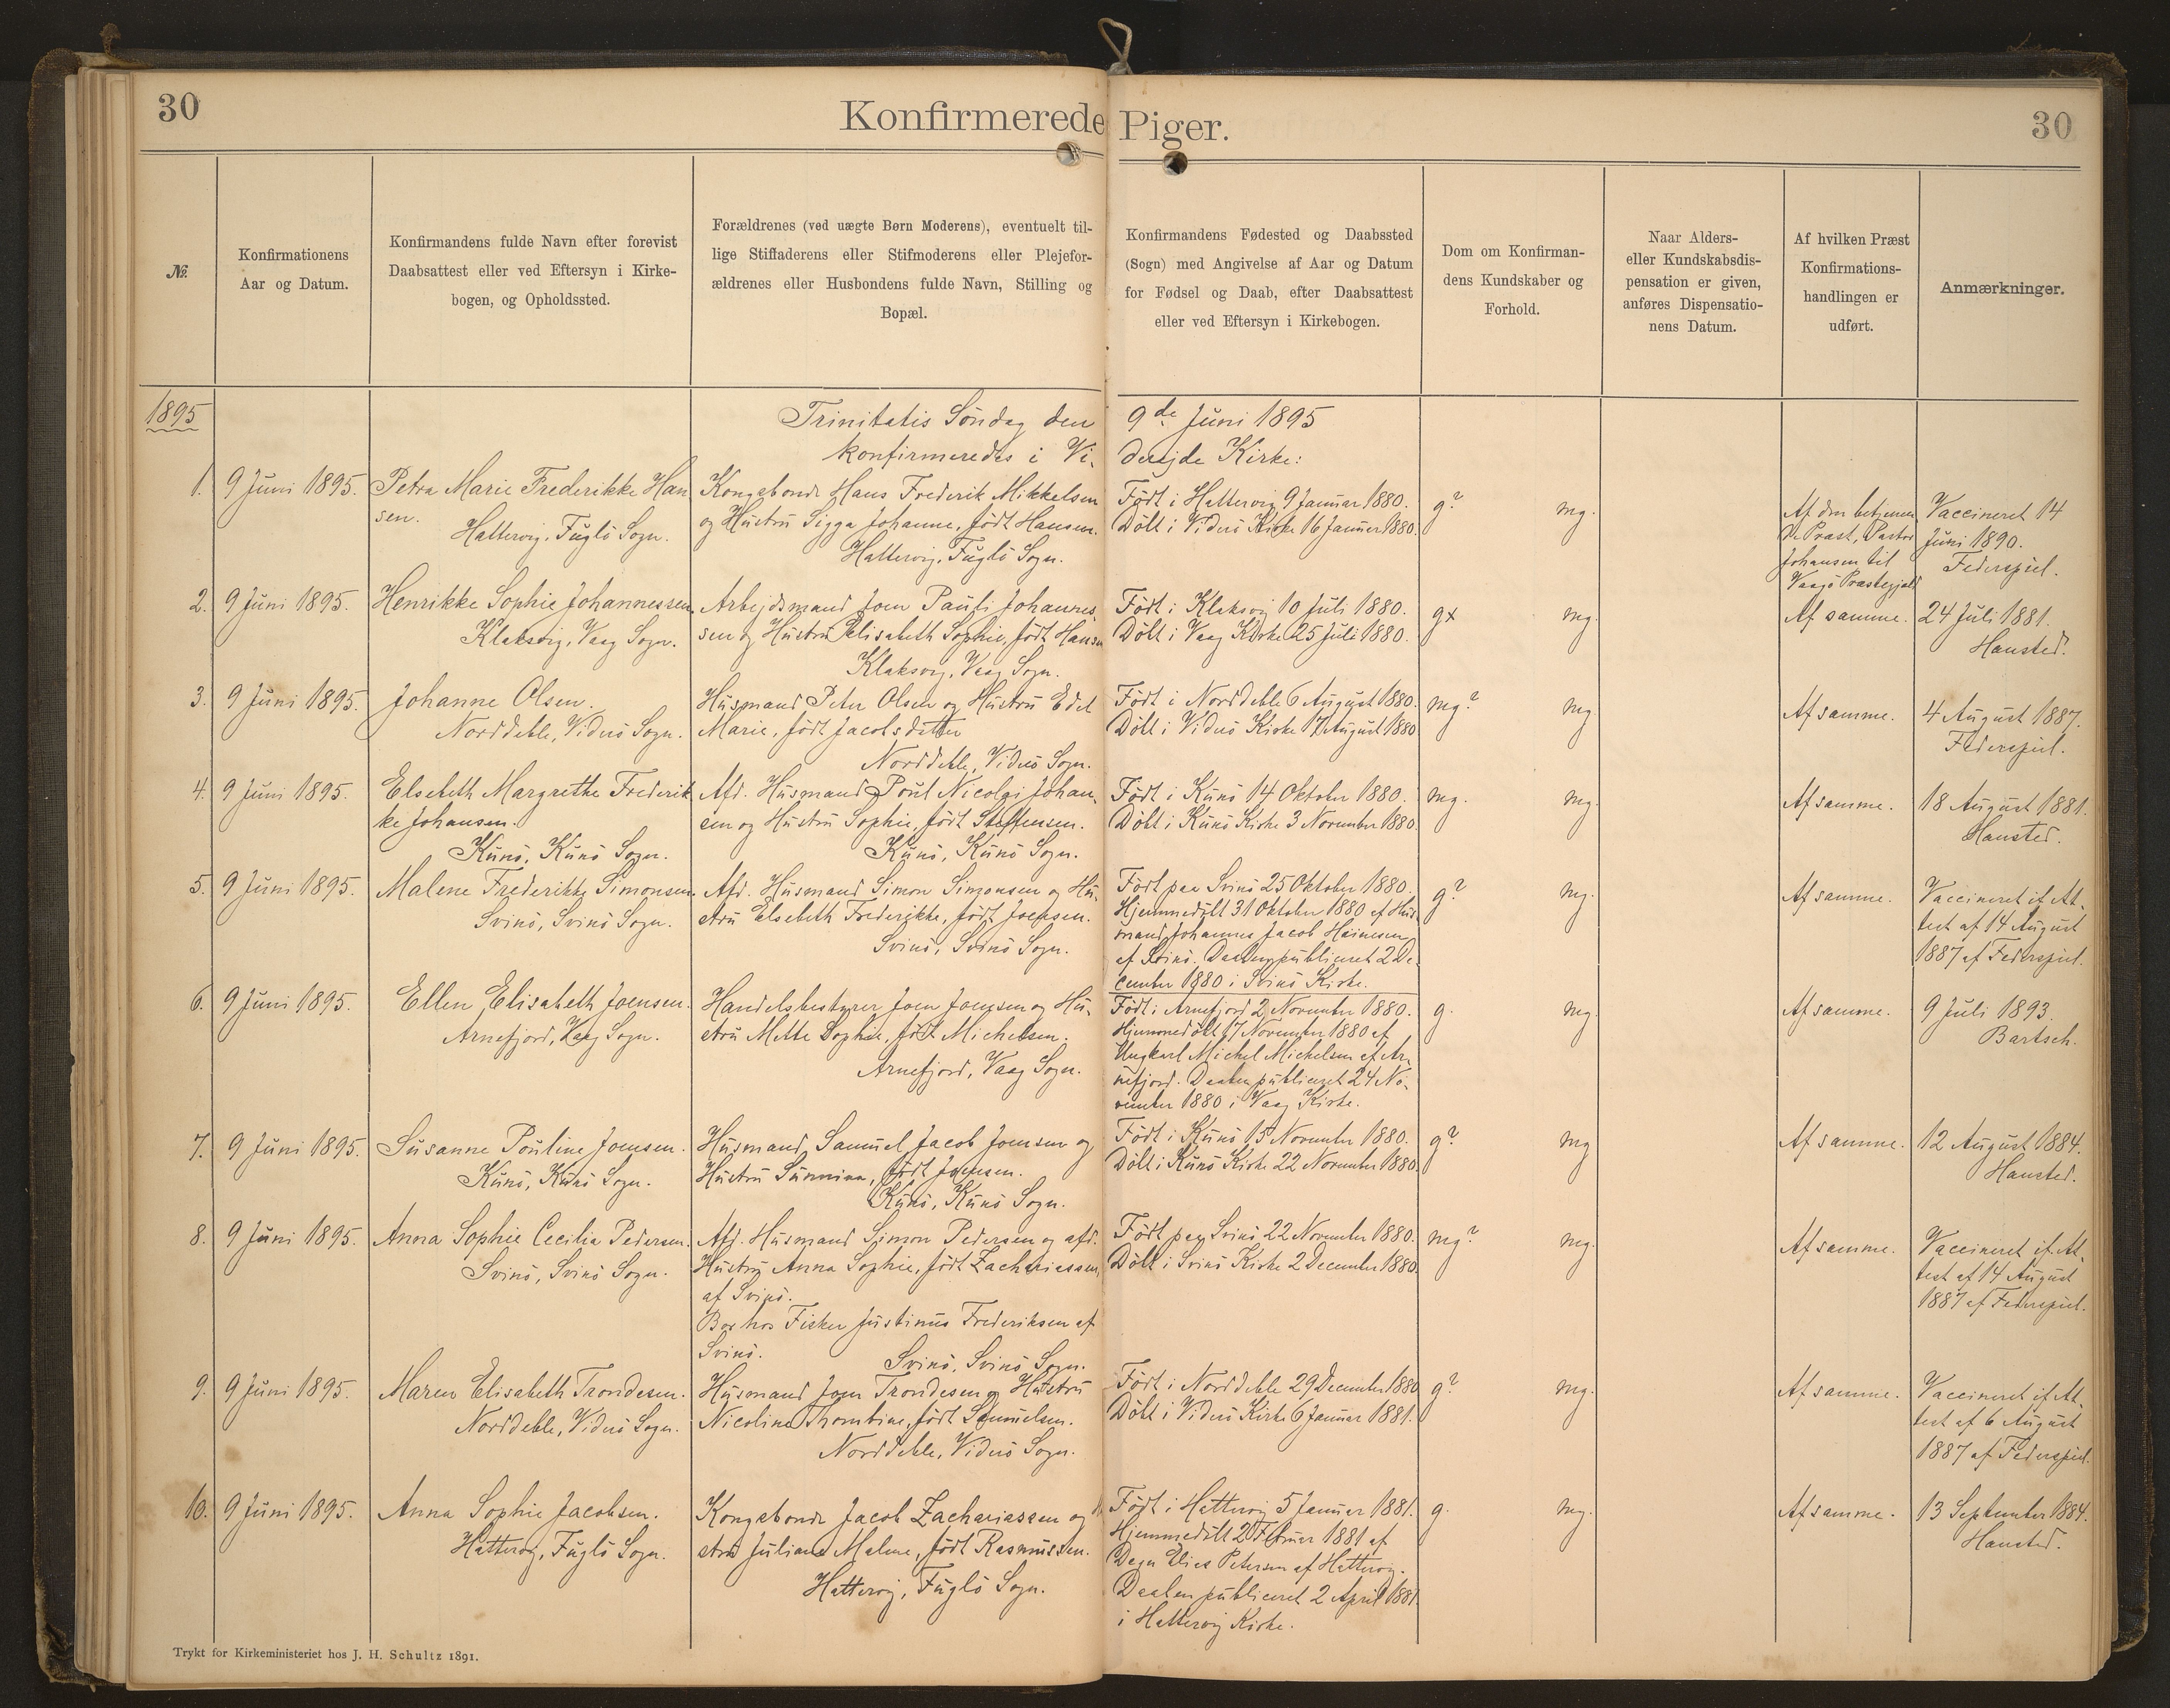 30
Konfirmerede Piger.
30
№
Konfirmationens
Aar og Datum.
Konfirmandens fulde Navn efter forevist
Daabsattest eller ved Eftersyn i Kirke-
bogen, og Opholdssted.
Forældrenes (ved uægte Børn Moderens), eventuelt til-
lige Stiffaderens eller Stifmoderens eller Plejefor-
ældrenes eller Husbondens fulde Navn, Stilling og
Bopæl.
Konfirmandens Fødested og Daabssted
(Sogn) med Angivelse af Aar og Datum
for Fødsel og Daab, efter Daabsattest
eller ved Eftersyn i Kirkebogen.
Dom om Konfirman-
dens Kundskaber og
Forhold.
Naar Alders-
eller Kundskabsdis-
pensation er given,
anføres Dispensatio-
nens Datum.
Af hvilken Præst
Konfirmations-
handlingen er
udført.
Anmærkninger.
1895
Trinitatis Söndag den 9de Juni 1895
konfirmeredes i Vi- derejde Kirke:
1.
9 Juni 1895.
Petra Marie Frederikke Han
sen.
Hattervig, Fuglö Sogn.
Kongsbonde Hans Frederik Mikkelsen
og Hustru Sigga Johanne, födt Hansen.
Hattervig, Fuglö Sogn.
Födt i Hattervig 9 Januar 1880.
Döbt i Viderö Kirke 16 Januar 1880.
g?
mg.
Af den betjenen
de Præst, Pastor
Johansen til
Vaagö Præstegjæld
Vaccineret 14
Juni 1890.
Federspiel.
2.
9 Juni 1895.
Henrikke Sophie Johannessen
Klaksvig, Vaag Sogn.
Arbejdsmand Joen Pauli Johannes
sen og Hustru Elisabeth Sophie, födt Hansen
Klaksvig, Vaag Sogn.
Födt i Klaksvig 10 Juli 1880.
Döbt i Vaag Kirke 25 Juli 1880.
g+
mg.
Af samme.
24 Juli 1881.
Hansted.
3.
9 Juni 1895.
Johanne Olsen.
Norddeble, Viderö Sogn.
Husmand Peter Olsen og Hustru Edel
Marie, födt Jacobsdatter
Norddeble, Viderö Sogn.
Födt i Norddeble 6 August 1880.
Döbt i Viderö Kirke 17 August 1880
mg?
mg
Af samme.
4 August 1887.
Federspiel.
4.
9 Juni 1895.
Elsebeth Margrethe Frederik
ke Johansen.
Kunö, Kunö Sogn.
Afd. Husmand Poul Nicolai Johan-
sen og Hustru Sophie, födt Steffensen.
Kunö, Kunö Sogn.
Födt i Kunö 14 Oktober 1880.
Döbt i Kunö Kirke 3 November 1880.
mg.
mg.
Af samme.
18 August 1881.
Hansted.
5.
9 Juni 1895.
Malene Frederikke Simonsen.
Svinö, Svinö Sogn.
Afd. Husmand Simon Simonsen og Hu-
stru Elsebeth Frederikke, födt Joensen.
Svinö, Svinö Sogn.
Födt paa Svinö 25 Oktober 1880.
Hjemmedöbt 31 Oktober 1880 af Hus-
mand Johannes Jacob Heinesen
af Svinö. Daaben publiceret 2 De-
cember 1880 i Svinö Kirke.
g?
mg.
Af samme.
Vaccineret if. At-
test af 14 August
1887 af Federspiel.
6.
9 Juni 1895.
Ellen Elisabeth Joensen.
Arnefjord, Vaag Sogn.
Handelsbestyrer Joen Joensen og Hu-
stru Mette Sophie, födt Michelsen.
Arnefjord, Vaag Sogn.
Födt i Arnefjord 2 November 1880.
Hjemmedöbt 17 November 1880 af
Ungkarl Michel Michelsen af Ar-
nefjord. Daaben publiceret 24 No-
vember 1880 i Vaag Kirke.
g.
mg.
Af samme.
9 Juli 1893.
Bartsch.
7.
9 Juni 1895.
Susanne Pouline Joensen.
Kunö, Kunö Sogn.
Husmand Samuel Jacob Joensen og
Hustru Sunniva, födt Joensen.
Kunö, Kunö Sogn.
Födt i Kunö 15 November 1880.
Döbt i Kunö Kirke 22 November 1880.
g?
mg
Af samme.
12 August 1884.
Hansted.
8.
9 Juni 1895.
Anna Sophie Cecilia Pedersen.
Svinö, Svinö Sogn.
Afd. Husmand Simon Pedersen og afd.
Hustru Anna Sophie, födt Zachariassen
af Svinö.
Bor hos Fisker Justinus Frederiksen af
Svinö.
Svinö, Svinö Sogn.
Födt paa Svinö 22 November 1880.
Döbt i Svinö Kirke 2 December 1880.
mg?
mg.
Af samme.
Vaccineret if. At-
test af 14 August
1887 af Federspiel.
9.
9 Juni 1895.
Maren Elisabeth Trondesen.
Norddeble, Viderö Sogn.
Husmand Joen Trondesen og Hustru
Nicoline Thombine, födt Samuelsen.
Norddeble, Viderö Sogn.
Födt i Norddeble 29 December 1880
Döbt i Viderö Kirke 6 Januar 1881.
g?
mg.
Af samme.
Vaccineret if. At-
test af 6 August
1887 af Federspiel.
10.
9 Juni 1895.
Anna Sophie Jacobsen.
Hattervig, Fuglö Sogn.
Kongsbonde Jacob Zachariassen og
stru Juliane Malene, födt Rasmussen.
Hattervig, Fuglö Sogn.
Födt i Hattervig 5 Januar 1881.
Hjemmedöbt 2 Februar 1881 af
Degn Elias Petersen af Hattervig.
Daaben publiceret 2 April 1881
i Hattervig Kirke.
g.
mg.
Af samme.
13 September 1884.
Hansted.
Trykt for Kirkeministeriet hos J. H. Schultz 1891.